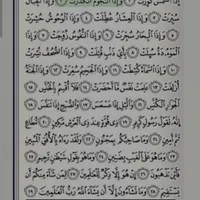 إِذَا ٱلشَّمْسُ كُوِّرَتْ ١ وَإِذَا ٱلنُّجُومُ ٱنكَدَرَتْ ٢ وَإِذَا ٱلْجِبَالُ
سُيِّرَتْ ٣ وَإِذَا ٱلْعِشَارُ عُطِّلَتْ ٤ وَإِذَا ٱلْوُحُوشُ حُشِرَتْ
٥ وَإِذَا ٱلْبِحَارُ سُجِّرَتْ ٦ وَإِذَا ٱلنُّفُوسُ زُوِّجَتْ ٧ وَإِذَا
ٱلْمَوْءُۥدَةُ سُئِلَتْ ٨ بِأَىِّ ذَنۢبٍ قُتِلَتْ ٩ وَإِذَا ٱلصُّحُفُ نُشِرَتْ
١٠ وَإِذَا ٱلسَّمَآءُ كُشِطَتْ ١١ وَإِذَا ٱلْجَحِيمُ سُعِّرَتْ ١٢ وَإِذَا ٱلْجَنَّةُ
أُزْلِفَتْ ١٣ عَلِمَتْ نَفْسٌ مَّآ أَحْضَرَتْ ١٤ فَلَآ أُقْسِمُ بِٱلْخُنَّسِ
١٥ ٱلْجَوَارِ ٱلْكُنَّسِ ١٦ وَٱلَّيْلِ إِذَا عَسْعَسَ ١٧ وَٱلصُّبْحِ إِذَا تَنَفَّسَ
١٨ إِنَّهُۥ لَقَوْلُ رَسُولٍ كَرِيمٍ ١٩ ذِى قُوَّةٍ عِندَ ذِى ٱلْعَرْشِ مَكِينٍ ٢٠ مُّطَاعٍ
ثَمَّ أَمِينٍ ٢١ وَمَا صَاحِبُكُم بِمَجْنُونٍ ٢٢ وَلَقَدْ رَءَاهُ بِٱلْأُفُقِ ٱلْمُبِينِ
٢٣ وَمَا هُوَ عَلَى ٱلْغَيْبِ بِضَنِينٍ ٢٤ وَمَا هُوَ بِقَوْلِ شَيْطَٰنٍ رَّجِيمٍ ٢٥
فَأَيْنَ تَذْهَبُونَ ٢٦ إِنْ هُوَ إِلَّا ذِكْرٌ لِّلْعَٰلَمِينَ ٢٧ لِمَن شَآءَ مِنكُمْ أَن
يَسْتَقِيمَ ٢٨ وَمَا تَشَآءُونَ إِلَّآ أَن يَشَآءَ ٱللَّهُ رَبُّ ٱلْعَٰلَمِينَ ٢٩